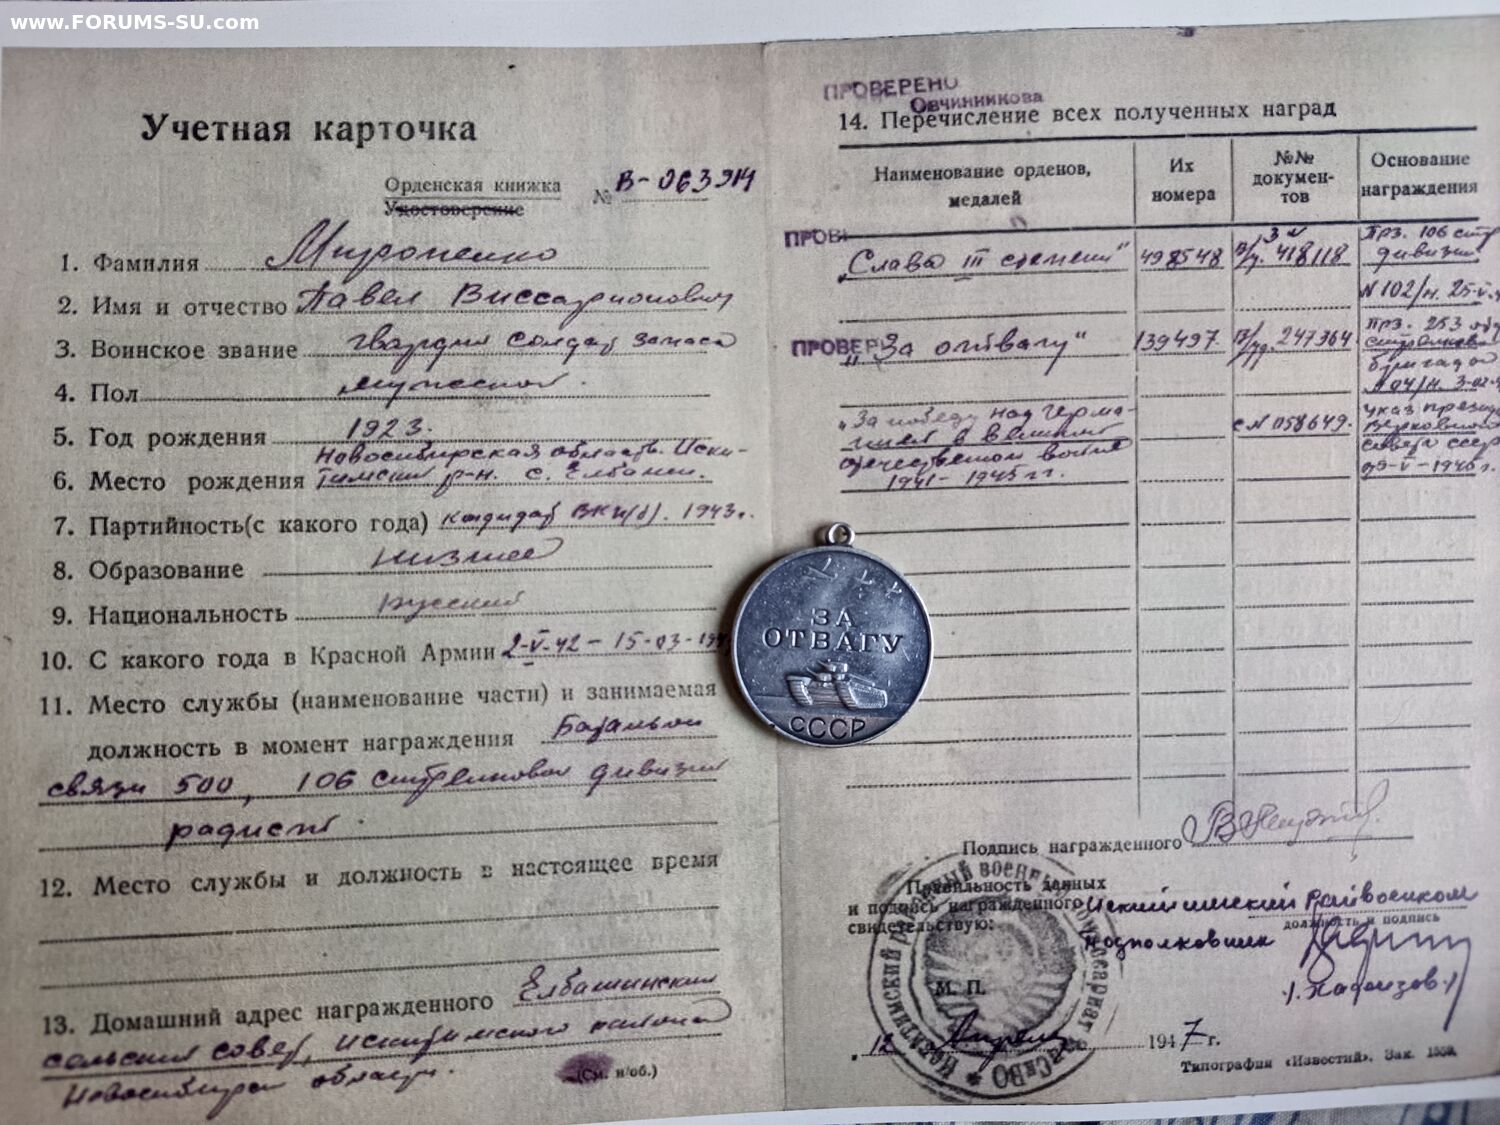 www.FORUMS-SU.com
Учетная карточка
Орденская книжка № В-063914
Удостоверение
1. Фамилия Мироненко
2. Имя и отчество Павел Виссарионович
3. Воинское звание гвардии солдат запаса
4. Пол мужской
5. Год рождения 1923.
6. Место рождения Новосибирская область. Иски-
тимский р-н. с. Елбаши.
7. Партийность(с какого года) кандидат ВКП(б). 1943г.
8. Образование низшее
9. Национальность русский
10. С какого года в Красной Армии 2-V-42 - 15-03-194
11. Место службы (наименование части) и занимаемая
должность в момент награждения Батальон
связи 500, 106 стрелковая дивизия
радист.
12. Место службы и должность в настоящее время
13. Домашний адрес награжденного Елбашинский
сельский совет, Искитимского района
Новосибирской области.
(См. н/об.)
ПРОВЕРЕНО
Овчинникова
14. Перечисление всех полученных наград
Наименование орденов, медалей
Их номера
№№ докумен-тов
Основание награждения
ПРОВЕ
„Слава III степени" 498548 418118 Прз. 106 стр дивизии
N 102/н. 25-V
ПРОВЕР
„За отвагу" 139497. 247364 Прз. 253
бригады
N 04/н.
„За победу над Герма-
нией в великой
отечественной войне
1941 - 1945 гг.
с N 058649.
Указ през
Верховного
совета СССР
09-V-1945г.
ЗА
ОТВАГУ
СССР
Подпись награжденного
Правильность данных
и подпись награжденного
свидетельствую:
Искитимский райвоенком
должность и подпись
подполковник
М. П.
12 Апреля 1947 г.
Типография «Известий». Зак. 1559.